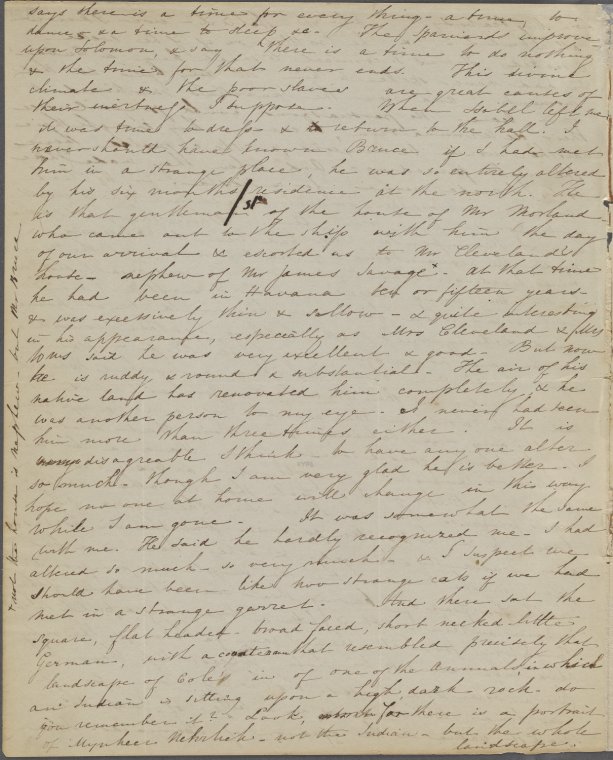 says there is a time for every thing - a time, to
dance - & a time to sleep &c - The Spaniards improve
upon Solomon, & say There is a time to do nothing
& the time for that never ends. This divine
climate & the poor slaves are great causes of
their inertness I suppose. When Isabel left me
it was time to dress & to return to the hall. I
never should have known Bruce if I had met
him in a strange place, he was so entirely altered
by his six months residence at the north. He
is that gentleman of the house of Mr Morland
who came out to the ship with him the day
of our arrival & escorted us to Mr Cleveland's
house - nephew of Mr James Savage. At that time
he had been in Havana ten or fifteen years -
& was excessively thin & sallow - & quite interesting
in his appearance, especially as Mrs Cleveland & Mrs
said he was very excellent & good - But now
he is ruddy & round & substantial - The air of his
native land has renovated him completely & he
was another person to my eye - I never had seen
him more than three times either. It is
disagreable I think to have any one alter
so much - though I am very glad he is better. I
hope no one at home will change in this way
while I am gone. It was somewhat the same
with me. He said he hardly recognized me - I had
altered so much - so very much - & I suspect we
should have been like two strange cats if we had
met in a strange garret. And there sat the
square, flat headed - broad faced, short necked little
German, with a contenan that resembled precisely that
landscape of Coles in of one of the Annuals, in which
an Indian is sitting upon a high, dark rock - do
you remember it? Look, for there is a portrait
of Mynheer - not the Indian - but the whole
landscape.
& not his house is nephew - but Mr Bruce